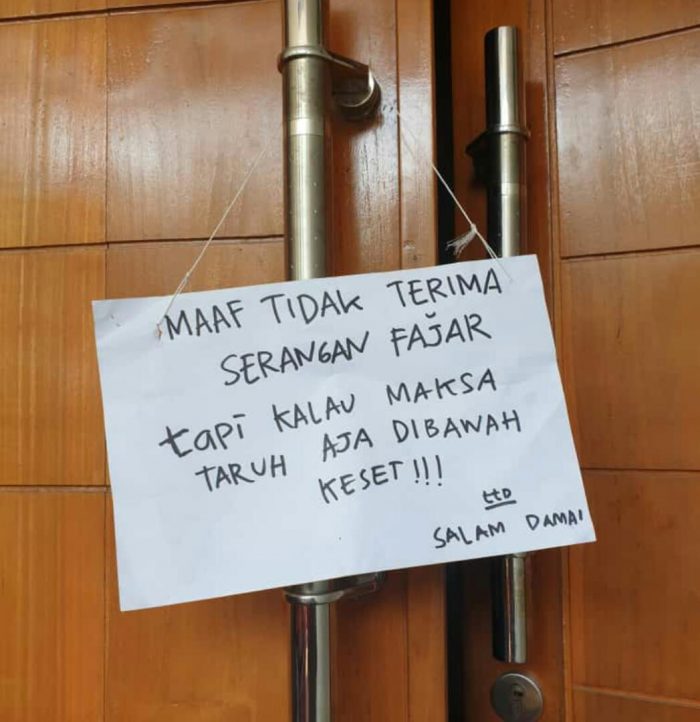 MAAF TIDAK TERIMA
SERANGAN FAJAR
tapi KALAU MAKSA
TARUH AJA DIBAWAH
KESET!!!
ttD
SALAM DAMAI